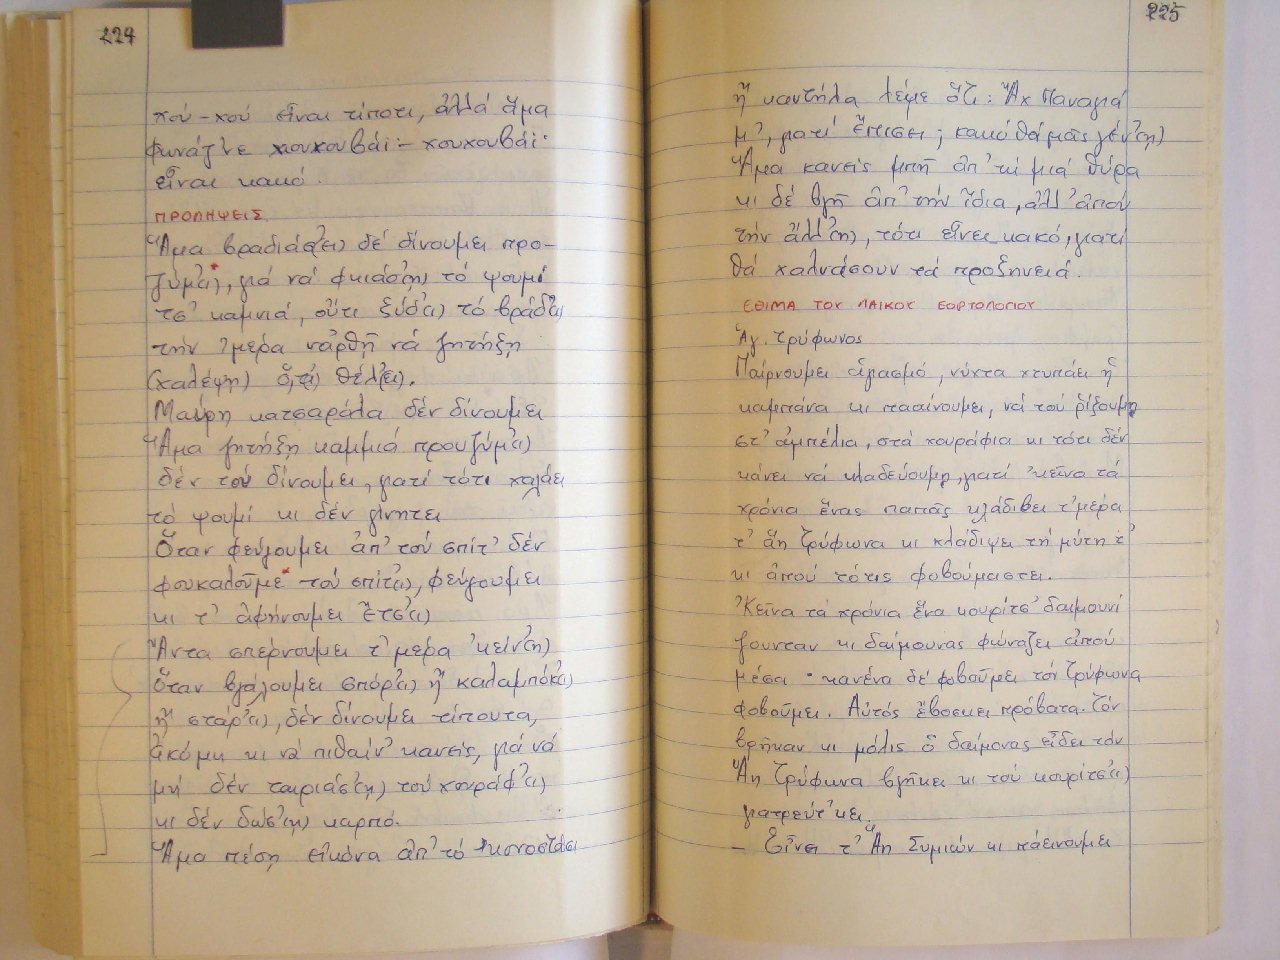 224
χού-χού εἶναι τίποτι, ἀλλά ἅμα
φωνάζ'νε χουχουβάϊ - χουχουβάϊ·
εἶναι κακό.
ΠΡΟΛΗΨΕΙΣ
Ἅμα βραδιάσ(ει) δέ δίνουμει προ-
ζύμ(ι)*, γιά νά φκιάσ(η) τό ψουμί
τσ' καμνιά, οὔτι ξύδ(ι) τό βράδ(ι)
τήν 'μέρα νἄρθῃ νά ζητήξῃ
(χαλέψῃ) ὅ,τ(ι) θέλ(ει).
Μαύρη κατσαρόλα δέν δίνουμει
Ἅμα ζητήξῃ καμμιά προυζύμ(ι)
δέν τού δίνουμει, γιατί τότι χαλάει
τό ψουμί κι δέν γίνητει
Ὅταν φεύγουμει ἀπ' τού σπίτ' δέν
φουκαλοῦμε* τού σπίτ(ι), φεύγουμει
κι τ' ἀφήνουμει ἔτσ'(ι)
Ἄντα σπέρνουμει τ' μέρα 'κείν'(η)
ὅταν βγάλουμει σπόρ'(ι) ἤ καλαμπόκ(ι)
ἤ στάρ'(ι), δέν δίνουμει τίπουτα,
ἀκόμη κι νά πιθαίν' κανείς, γιά νά
μή δέν ταιριάσ'(η) τού χουράφ'(ι)
κι δέν δώσ'(η) καρπό.
Ἅμα πέσῃ εἰκόνα ἀπ' τό κονοστάσι
225
ἤ καντήλα λέμε ὅτι: Ἄχ Παναγιά
μ', γιατί ἔπεσει; κακό θά μᾶς γέν'(η)
Ἅμα κανείς μπῇ ἀπ' τή μιά θύρα
κι δέ βγῇ ἀπ' τήν ἴδια, ἀλλ' ἀπού
τήν ἄλλ'(η), τότι εἶνει κακό, γιατί
θά χαλνάσουν τά προξηνειά.
ΕΘΙΜΑ ΤΟΥ ΛΑΙΚΟΥ ΕΟΡΤΟΛΟΓΙΟΥ
Ἁγ. Τρύφωνος
Παίρνουμει ἁγιασμό, νύχτα χτυπάει ἡ
καμπάνα κι πααίνουμει, νά τού ρίξουμη
στ' ἀμπέλια, στά χουράφια κι τότι δέν
κάνει νά κλαδεύουμη, γιατί 'κεῖνα τά
χρόνια ἕνας παπάς κλάδιβει τ' μέρα
τ' ἅη Τρύφωνα κι κλάδιψει τή μύτη τ'
κι ἀπού τότις φοβούμαστει.
Ἐκεῖνα τά χρόνια ἕνα κουρίτσ' δαιμουνί
ζουνταν κι δαίμουνας φώναζει ἀπού
μέσα· κανένα δέ φοβοῦμει τόν Τρύφωνα
φοβοῦμει. Αὐτός ἔβοσκει πρόβατα. Τόν
βρῆκαν κι μόλις ὁ δαίμονας εἶδει τόν
Ἅη Τρύφωνα βγῆκει κι τού κουρίτσ(ι)
γιατρεύτ'κει.
- Εἶνει τ' Ἅη Συμιών κι πάεινουμει